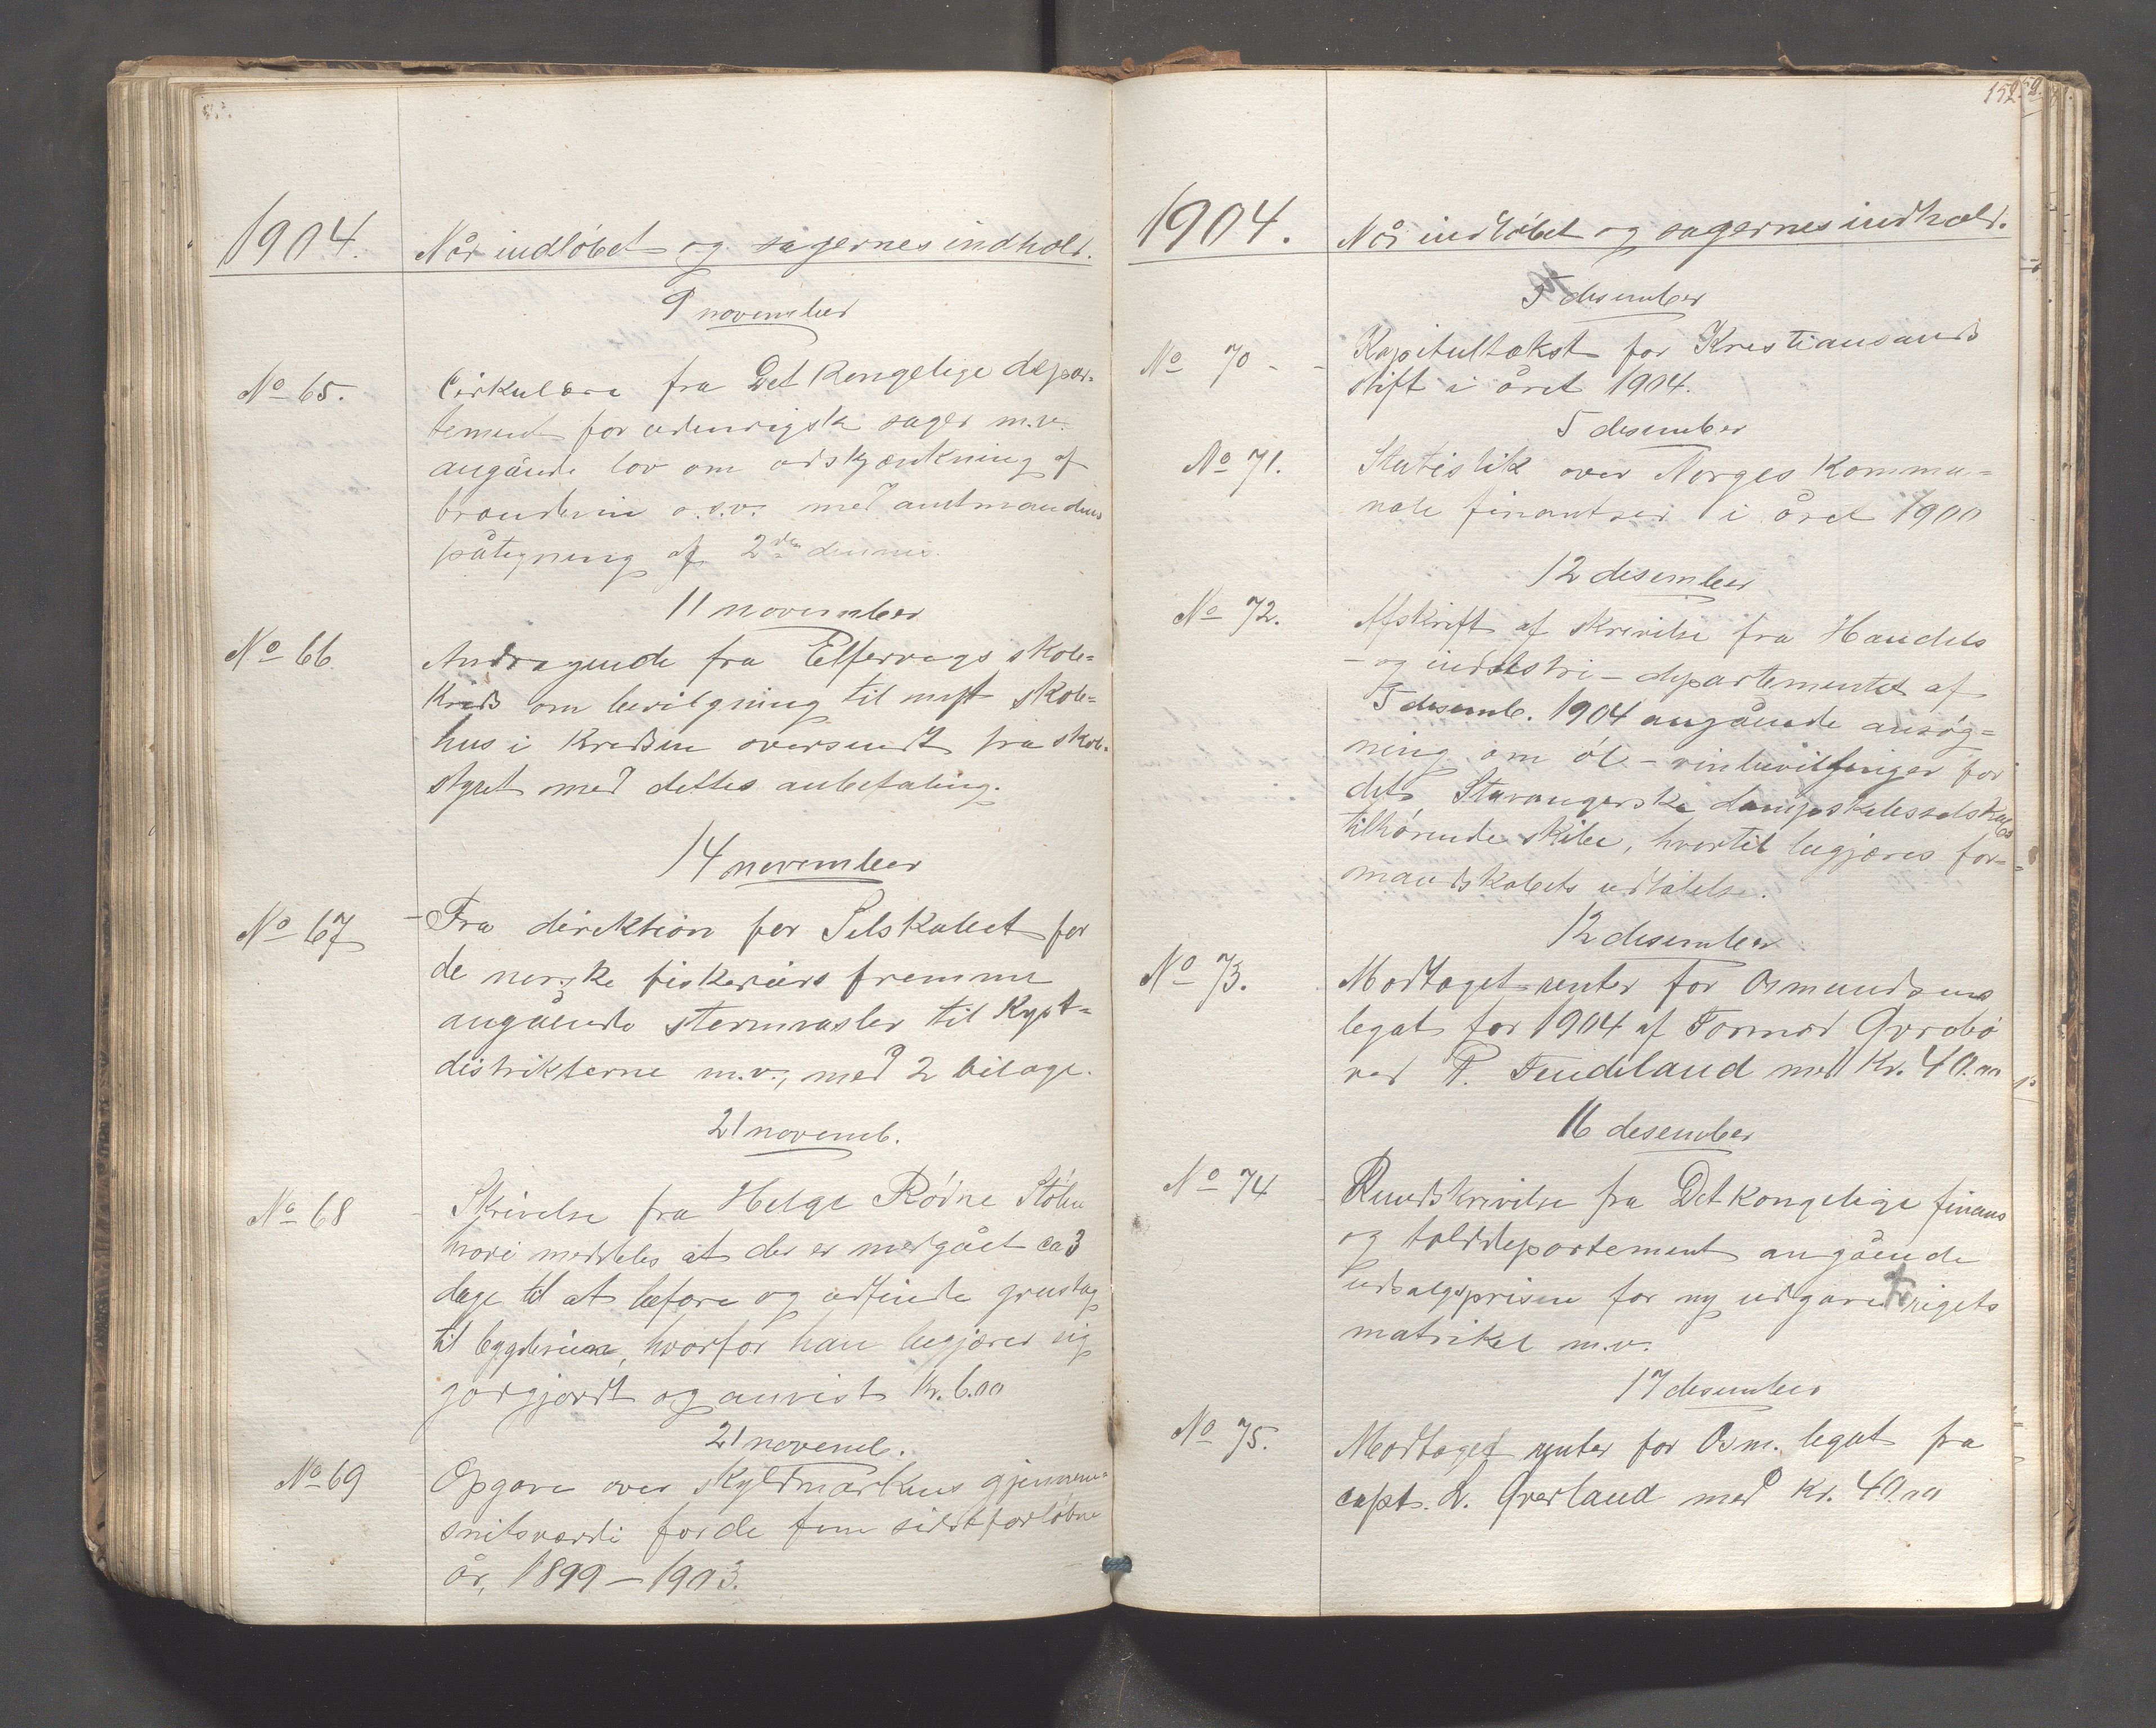 1904.
Når indløbet og sagernes indhold.
9 november
No 65.
Cirkulære fra Det Kongelige depar-
tement for udenrigske sager m.v.
angående lov om udskjænkning af
brændevin o.s.v. med amtmandens
påtegning af 2den dennes.
11 november
No 66.
Andragende fra Elfervags skole-
kreds om bevilgning til nyt skole-
hus i kredsen oversendt fra skole-
styret med dettes anbefaling.
14 november
No 67
Fra direktion for Selskabet for
de norske fiskeriers fremme
angående stormvasler til Kyst-
distrikterne m.v., med 2 bilage.
21 novemb.
No 68
Skrivelse fra Helge Rødne Stølen
hvori meddeles at der er medgået ca 3
dage til at befare og udfinde grustag
til bygdevein, hvorfor han begjærer sig
godgjordt og anvist Kr. 6.00
21 novemb.
No 69
Opgave over skyldmarkens gjennem-
snitsværdi for de fem sidst forløbne
år, 1899 – 1903.
152
1904.
Når indløbet og sagernes indhold.
5 desember
No 70
Kapitultakst for Kristiansands
stift i året 1904.
5 desember
No 71.
Statistik over Norges Kommu-
nale finantser i året 1900
12 desember
No 72.
Afskrift af skrivelse fra Handels
- og industri-departementet af
5 desemb. 1904 angående ansøg-
ning om øl- vinbevilginger for
det Stavangerske dampskibsselskabs
tilhørende skibe, hvortil begjæres for-
mandskabets udtalelse.
12 desember
No 73.
Modtaget renter for Osmundsens
legat for 1904 af Tormod Qvrabø
ved P. Tendeland med Kr. 40.00
16 desember
No 74
Rundskrivelse fra Det kongelige finans
og tolddepartement angående
udsalgsprisen for ny udgave rigets
matrikel m.v.
17 desember
No 75.
Modtaget renter for Osm. legat fra
capt. L. Qverland med Kr. 40.00